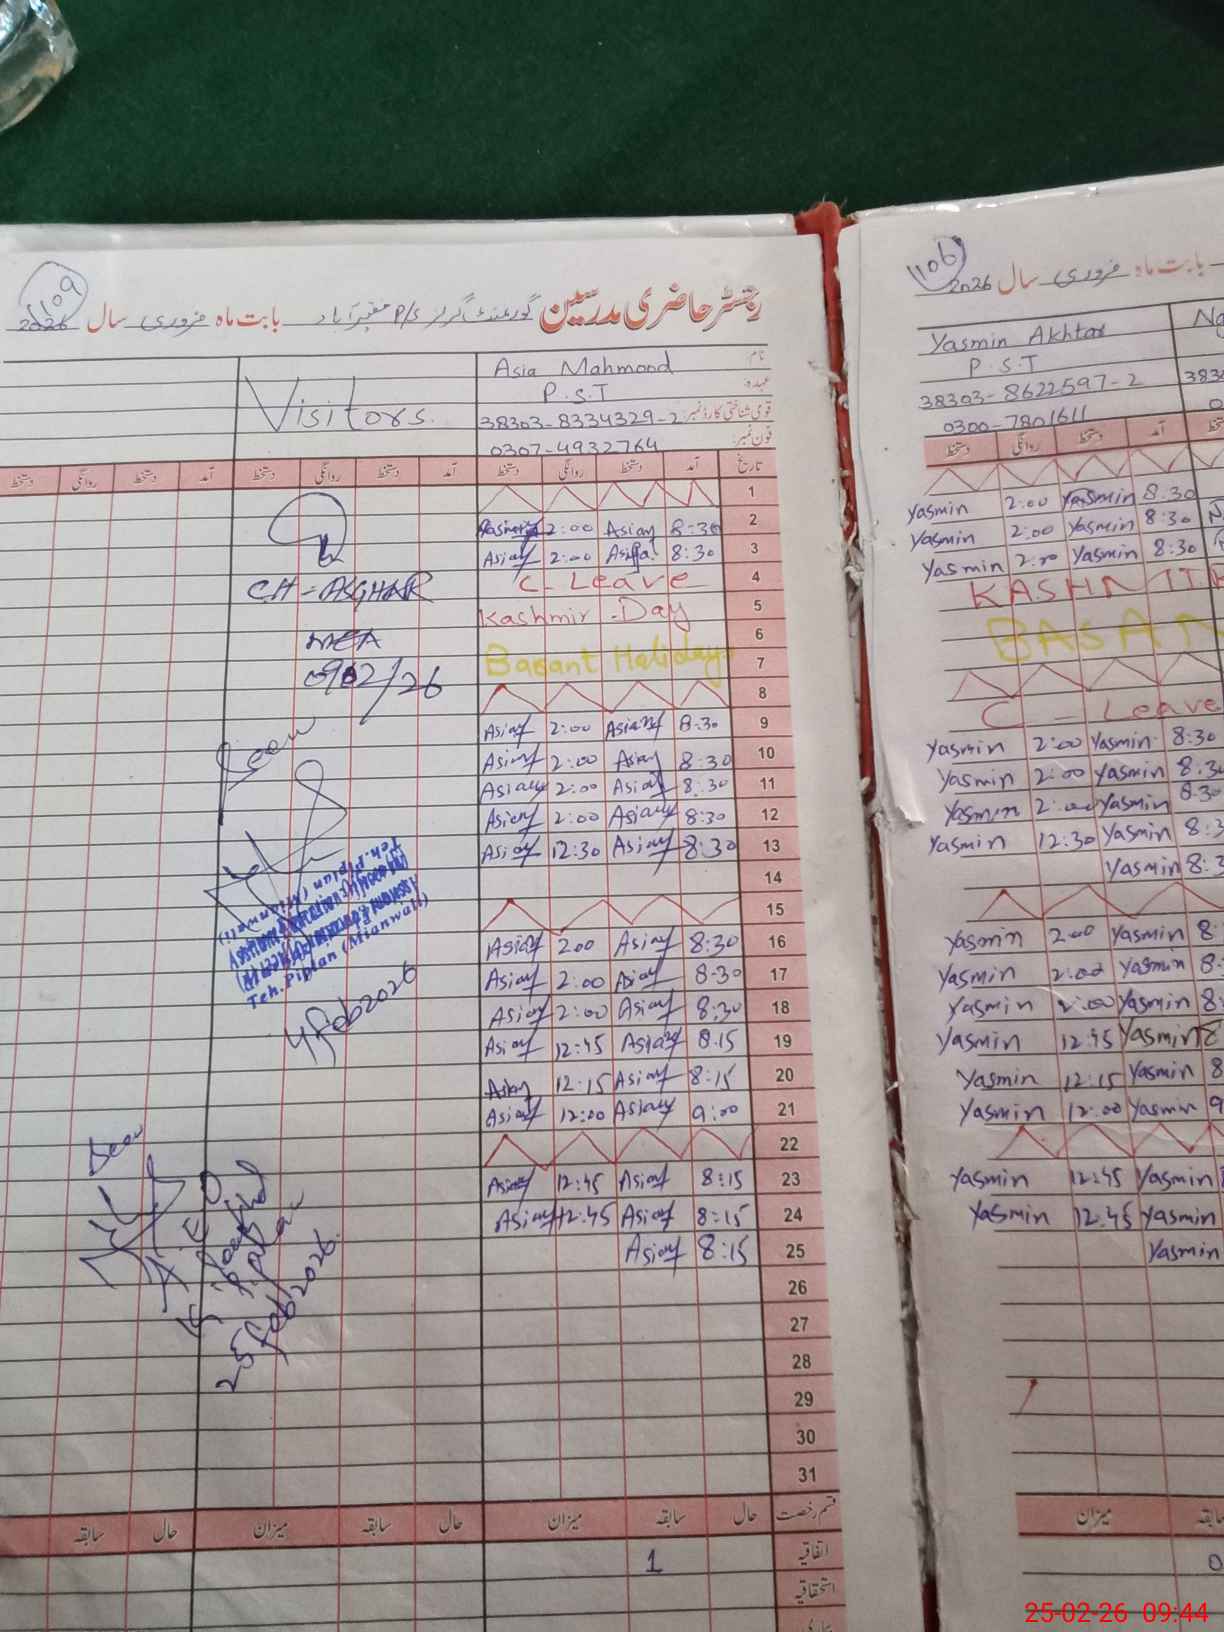 109
رجسٹر حاضری مدرسین گورنمنٹ گرلز P/S بابت ماہ فروری سال 2026
نام: Asia Mahmood
عہدہ: P.S.T
قومی شناختی کارڈ نمبر: 38303-8334329-2
فون نمبر: 0307-4932764
Visitors.
تاریخ آمد دستخط روانگی دستخط آمد دستخط روانگی دستخط آمد دستخط روانگی دستخط
1
2 8:30 Asiay 2:00
3 8:30 2:00 Asiay
4 C-Leave
5 Kashmir-Day
6
7 Basant Holidays
8
9 8:30 Asiay 2:00 Asiay
10 8:30 Asiay 2:00 Asiay
11 8:30 Asiay 2:00 Asiay
12 8:30 Asiay 2:00 Asiay
13 8:30 Asiay 12:30 Asiay
14
15
16 8:30 Asiay 2:00 Asiay
17 8:30 Asiay 2:00 Asiay
18 8:30 Asiay 2:00 Asiay
19 8:15 Asiay 12:45 Asiay
20 8:15 Asiay 12:15 Asiay
21 9:00 Asiay 12:00 Asiay
22
23 8:15 Asiay 12:45 Asiay
24 8:15 Asiay 12:45 Asiay
25 8:15 Asiay
26
27
28
29
30
31
قسم رخصت حال سابقہ میزان حال سابقہ میزان حال سابقہ
اتفاقیہ 1
استحقاقیہ
CH-ASGHAR
MEA
0902/26
Seen
Teh. Piplan (Mianwali)
4 Feb 2026
Seen
AEO
Piplan
25 Feb 2026
106
بابت ماہ فروری سال 2026
Yasmin Akhtar
P.S.T
38303-8622597-2
0300-7801611
آمد دستخط روانگی دستخط
8:30 Yasmin 2:00 Yasmin
8:30 Yasmin 2:00 Yasmin
8:30 Yasmin 2:00 Yasmin
KASHMIR
BASAN
C-Leave
8:30 Yasmin 2:00 Yasmin
8:30 Yasmin 2:00 Yasmin
8:30 Yasmin 2:00 Yasmin
8:3 Yasmin 12:30 Yasmin
8:3 Yasmin
8: Yasmin 2:00 Yasmin
8: Yasmin 2:00 Yasmin
8: Yasmin 2:00 Yasmin
8 Yasmin 12:45 Yasmin
8 Yasmin 12:15 Yasmin
9 Yasmin 12:00 Yasmin
Yasmin 12:45 Yasmin
Yasmin 12:45 Yasmin
Yasmin
میزان
0
25-02-26 09:44